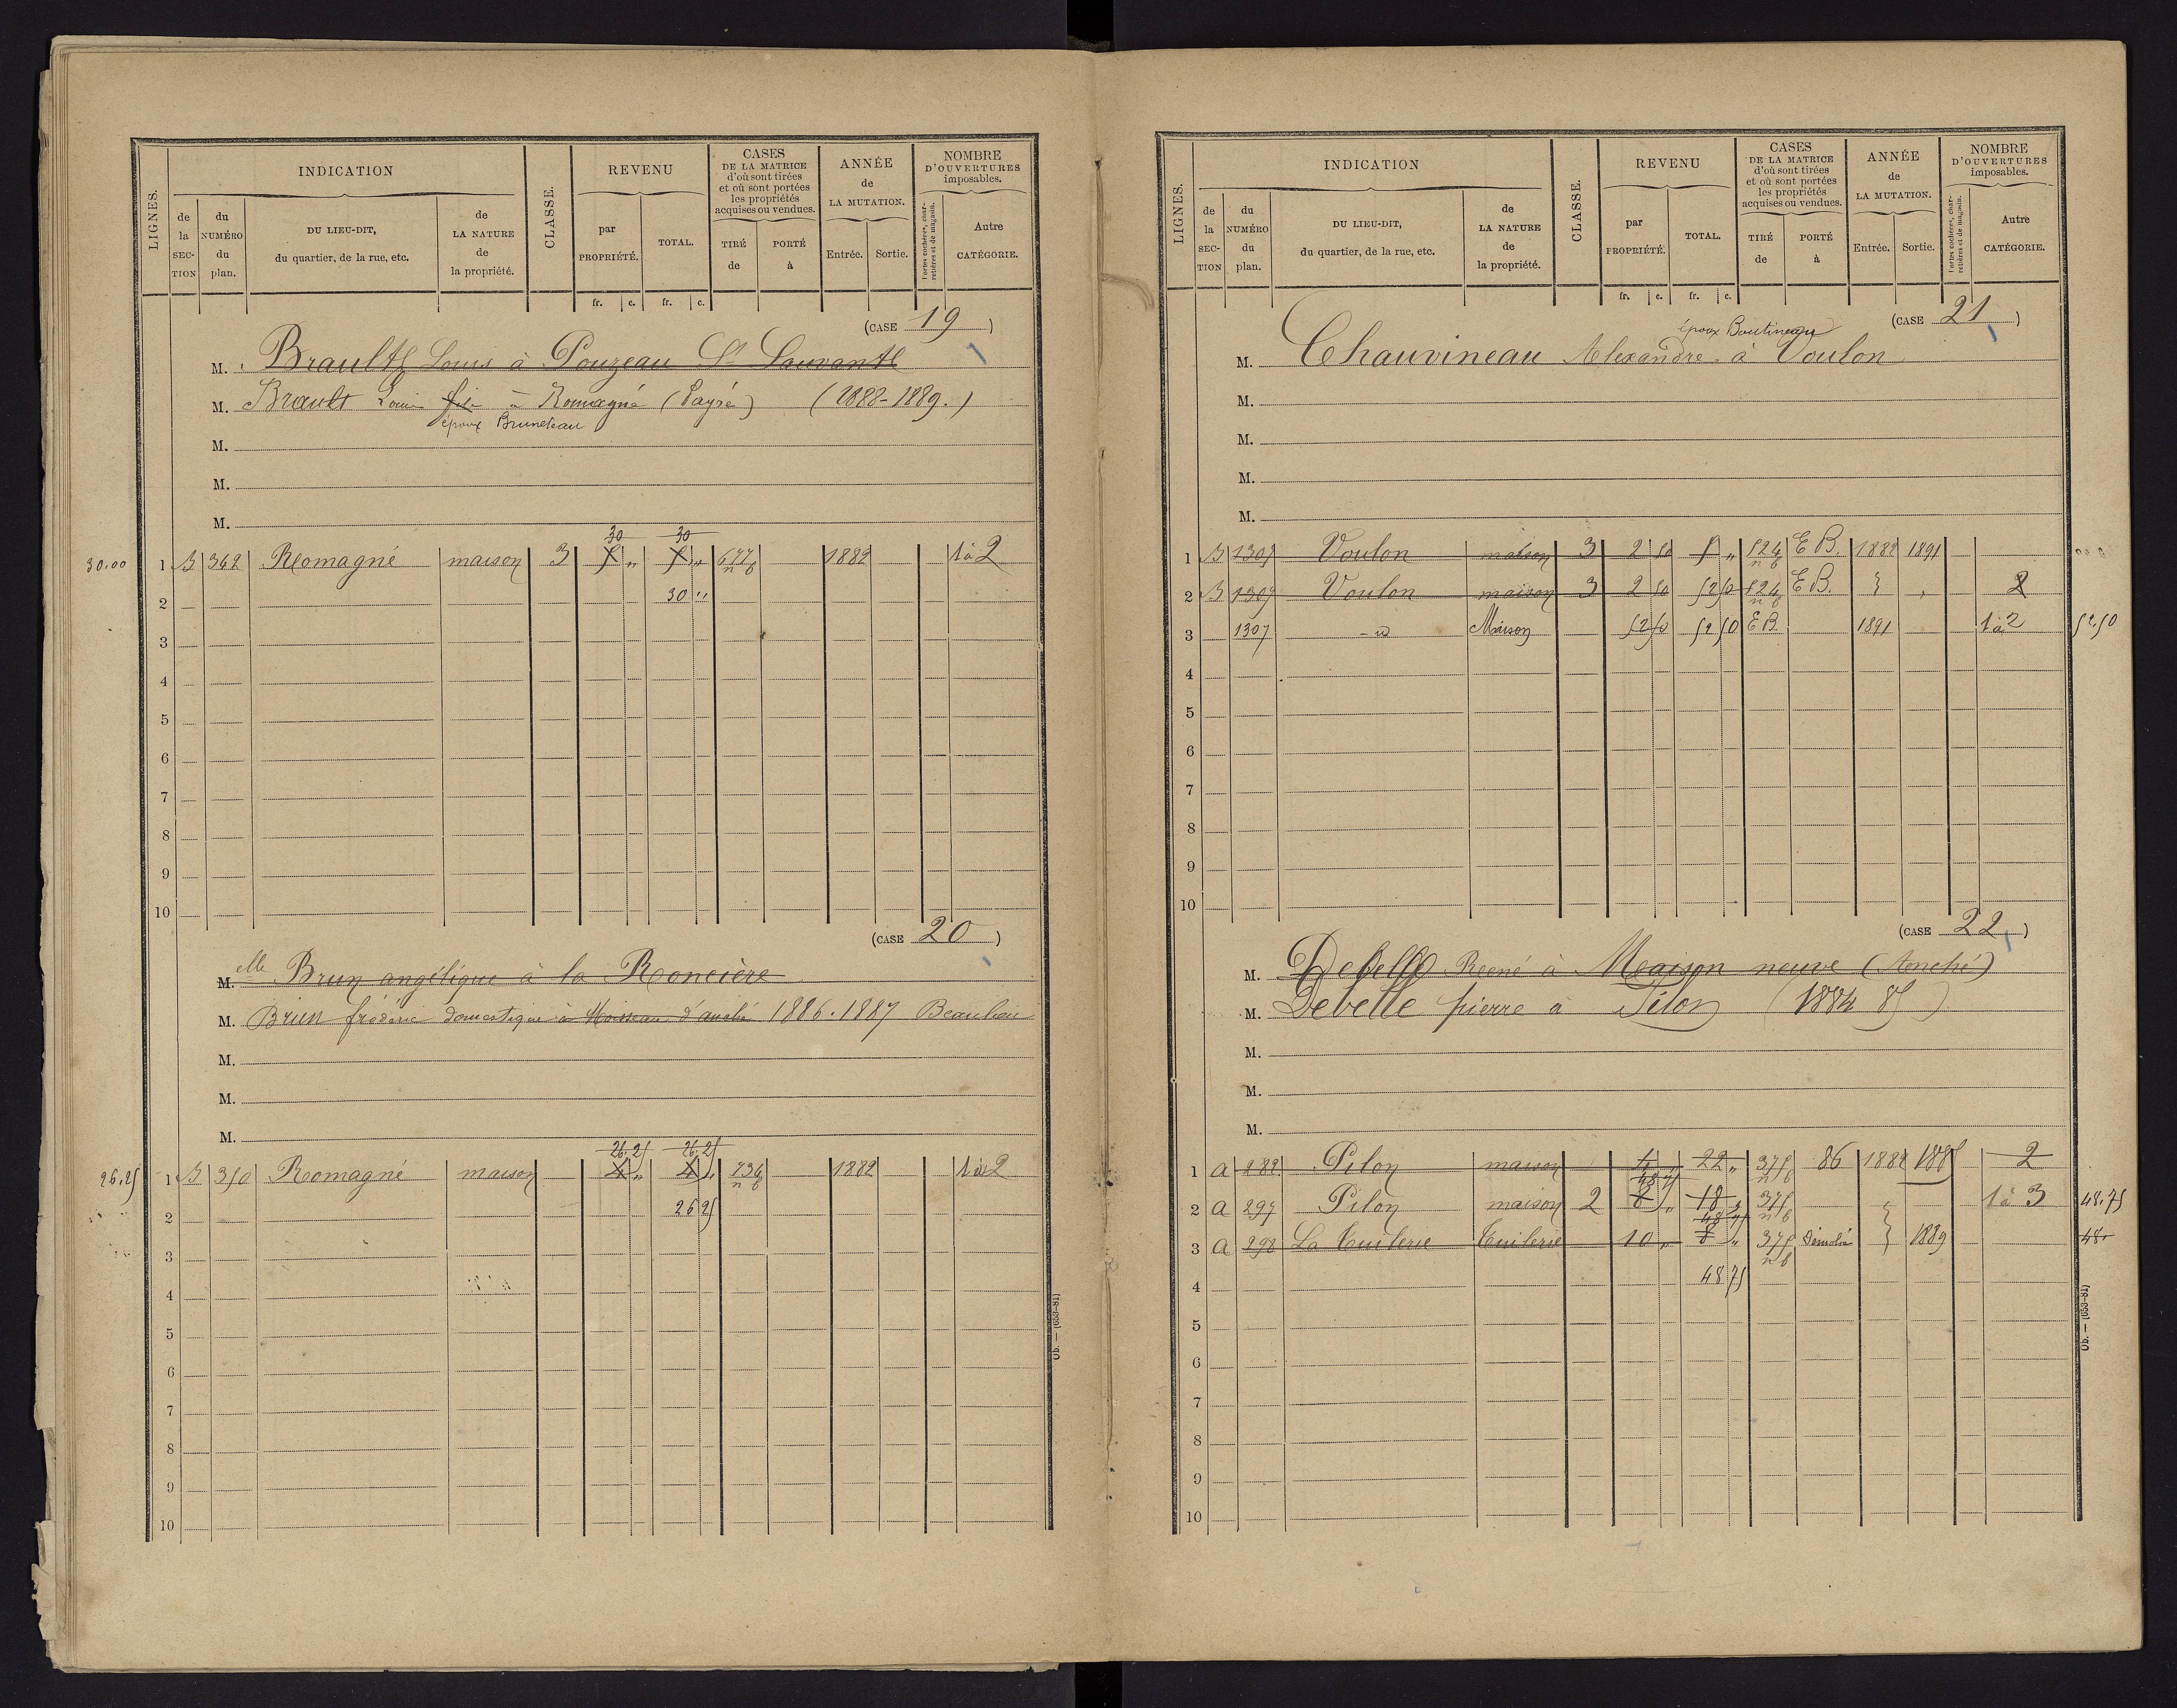 LIGNES. INDICATION CLASSE. REVENU CASES DE LA MATRICE d'où sont tirées et où sont portées les propriétés acquises ou vendues. ANNÉE de LA MUTATION. NOMBRE D'OUVERTURES imposables.
de la SECTION du NUMÉRO du plan. DU LIEU-DIT, du quartier, de la rue, etc. de LA NATURE de la propriété. par PROPRIÉTÉ. TOTAL. TIRÉ de PORTÉ à Entrée. Sortie. Portes cochères, charretières et de magasin. Autre CATÉGORIE.
fr. c. fr. c.
(CASE 19)
M. Brault Louis à Pouzeau St Sauvant
M. Brault Louis fils à Romagné (Payré) (1888-1889.)
époux Bruneteau
M.
M.
M.
30 30
30.00 1 B 362 Romagné maison 3 5 " 5 " 677 nb 1882 1 à 2
2 30 "
3
4
5
6
7
8
9
10
(CASE 20)
M.elle Brun angélique à la Roncière
M. Brun fréderic domestique à d'anché 1886.1887 Beaulieu
M.
M.
M.
26.25 26.25
26.25 1 B 350 Romagné maison 4 " 4 " 234 nb 1882 1 à 2
2 26 25
3
4
5
6
7
8
9
10
Ob. — (653-81)
LIGNES. INDICATION CLASSE. REVENU CASES DE LA MATRICE d'où sont tirées et où sont portées les propriétés acquises ou vendues. ANNÉE de LA MUTATION. NOMBRE D'OUVERTURES imposables.
de la SECTION du NUMÉRO du plan. DU LIEU-DIT, du quartier, de la rue, etc. de LA NATURE de la propriété. par PROPRIÉTÉ. TOTAL. TIRÉ de PORTÉ à Entrée. Sortie. Portes cochères, charretières et de magasin. Autre CATÉGORIE.
fr. c. fr. c.
(CASE 21)
époux Boutineau
M. Chauvineau Alexandre à Voulon
M.
M.
M.
M.
1 B 1307 Voulon maison 3 2 50 5 " 524 nb E B. 1882 1891
2 B 1307 Voulon maison 3 2 50 52 50 524 nb E B. 2
3 1307 - d Maison 52 50 52 50 E B 1891 1 à 2 52.50
4
5
6
7
8
9
10
(CASE 22)
M. Debelle René à Maison neuve (Anché)
M. Debelle pierre à Pilon (1884 85)
M.
M.
M.
1 A 282 Pilon maison 4 " 22 " 375 nb 86 1882 1885 2
48 75
2 A 297 Pilon maison 2 8 " 18 " 375 nb 1 à 3 48.75
48 75
3 A 298 La Tuilerie Tuilerie 10 " 8 " 375 nb Démolie 1889 48.
4 48 75
5
6
7
8
9
10
Ob. — (653-81)